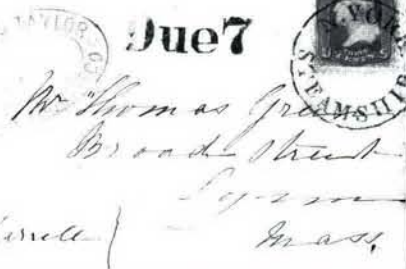 TAYLOR & CO
Due 7
N. YORK
STEAMSHIP
Mr Thomas Green
Broad Street
Lynn
Mass.